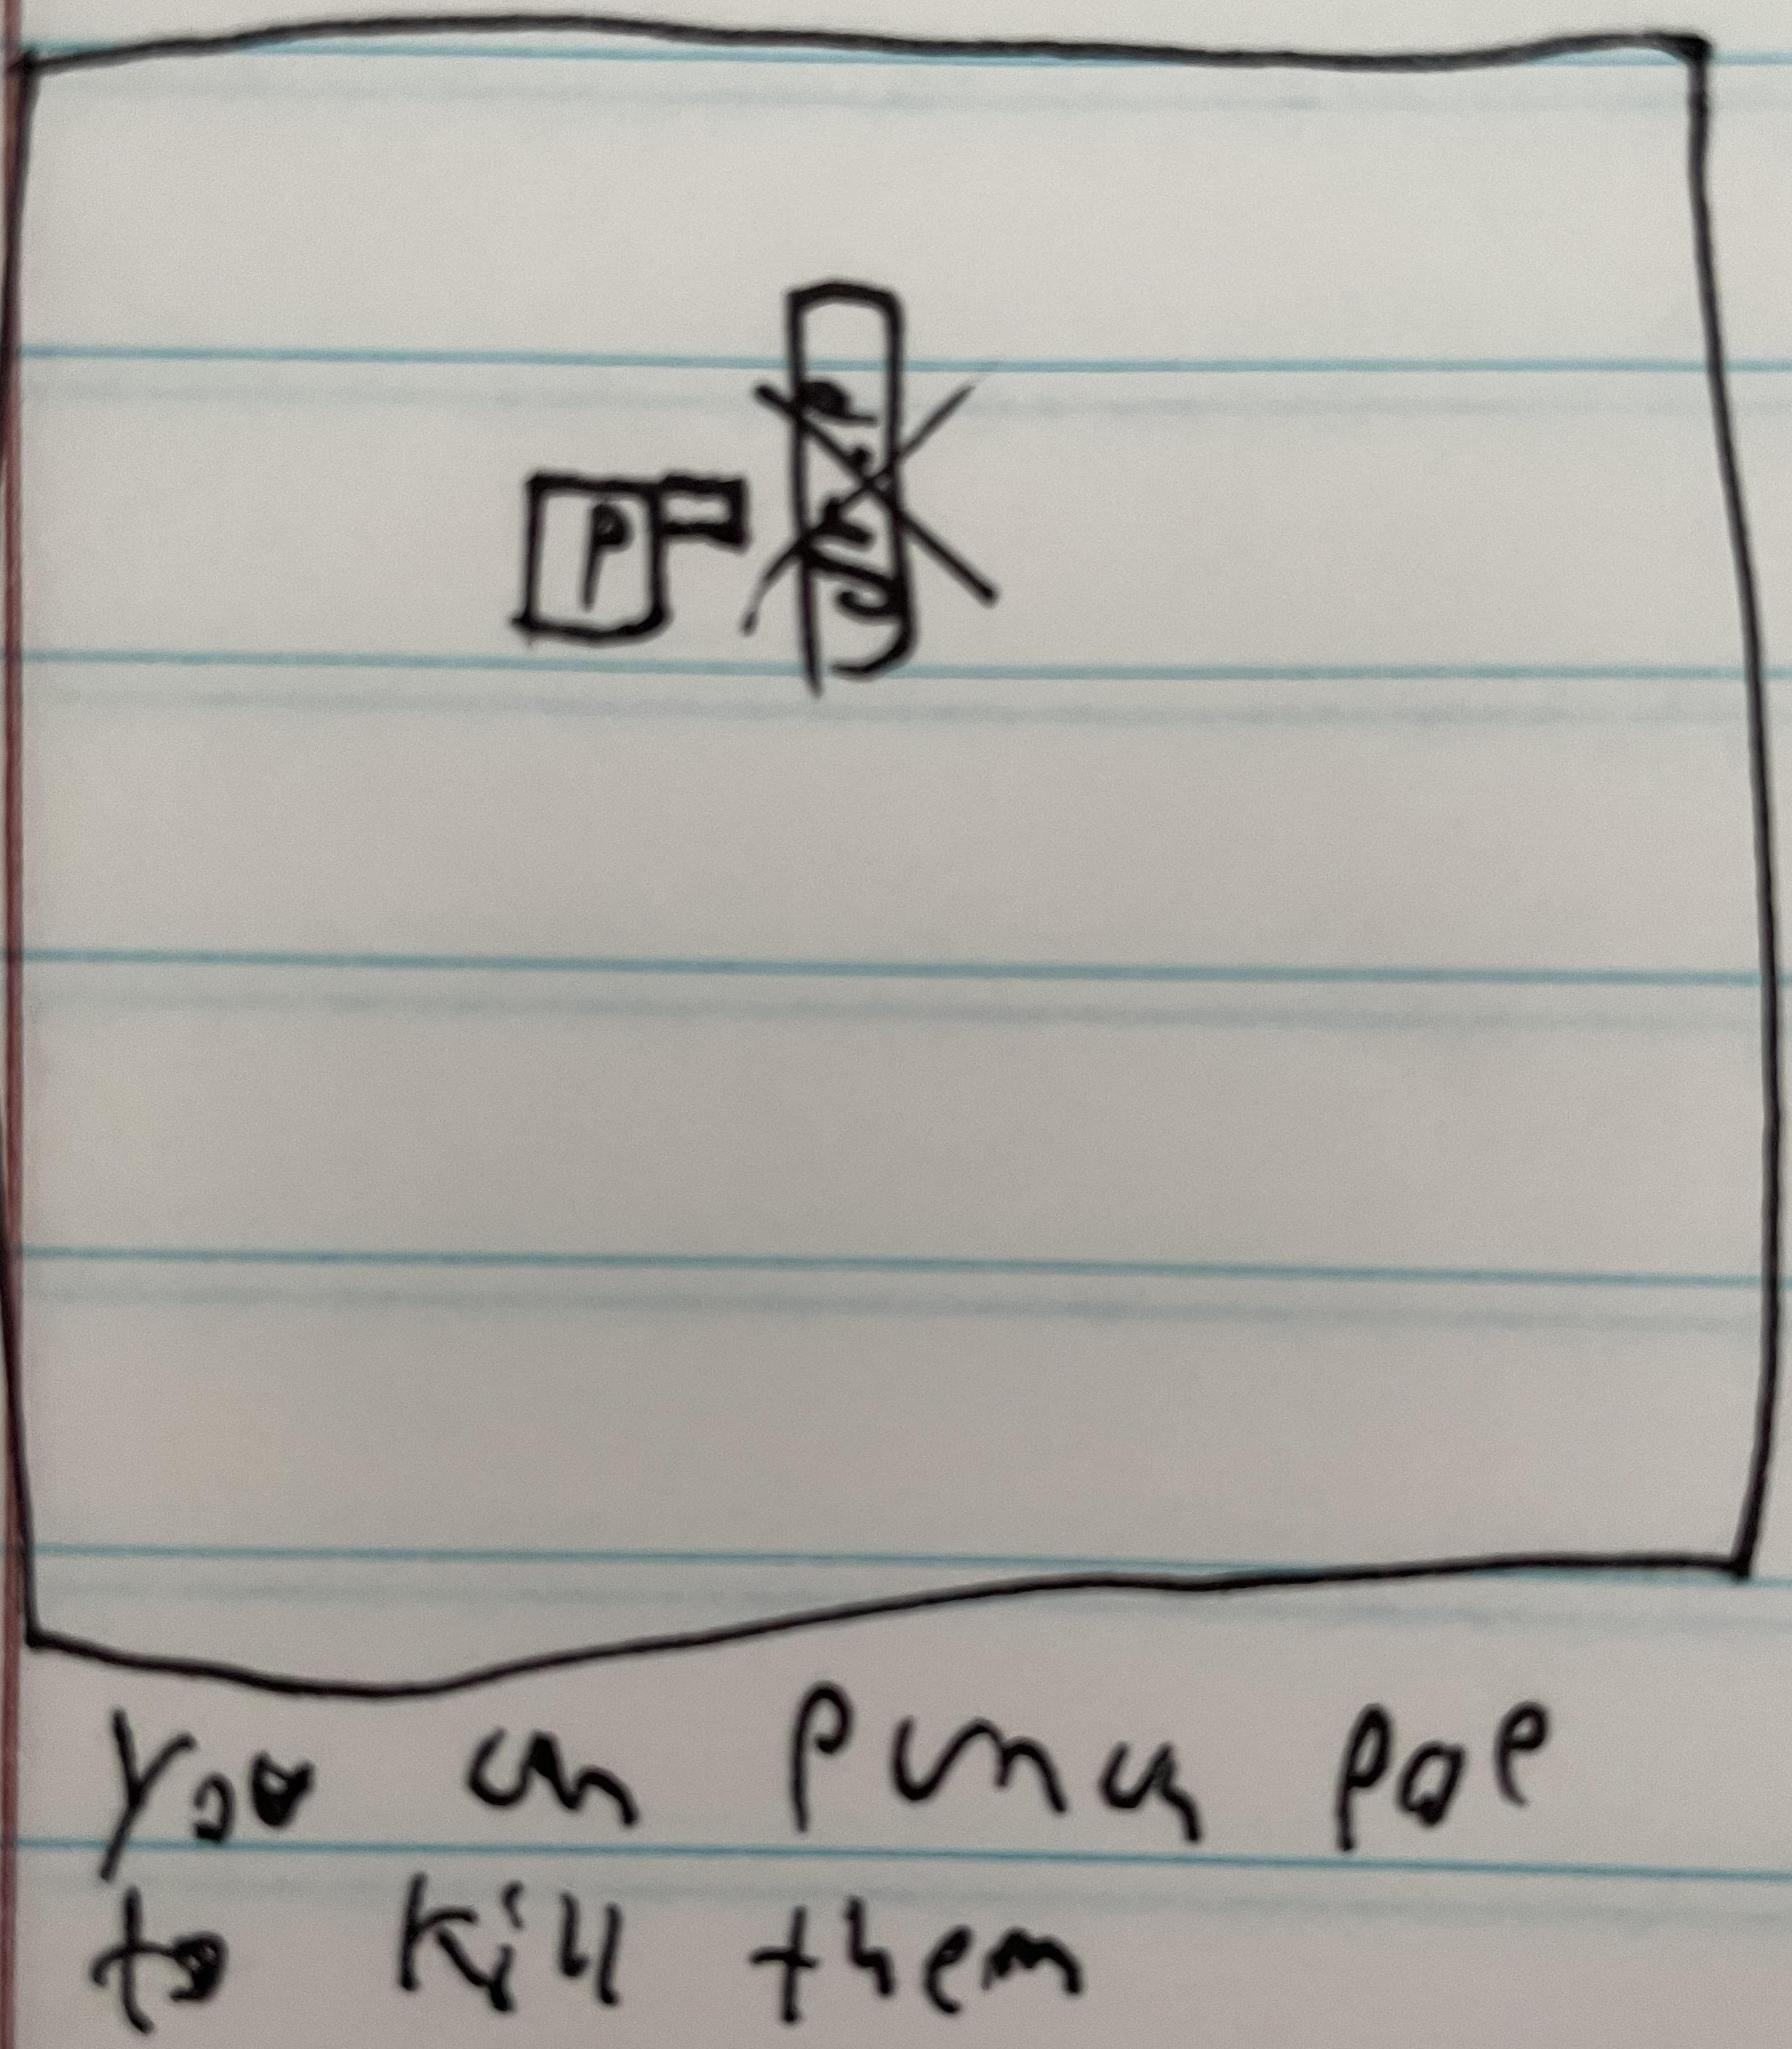 P
you can punch pop
to kill them